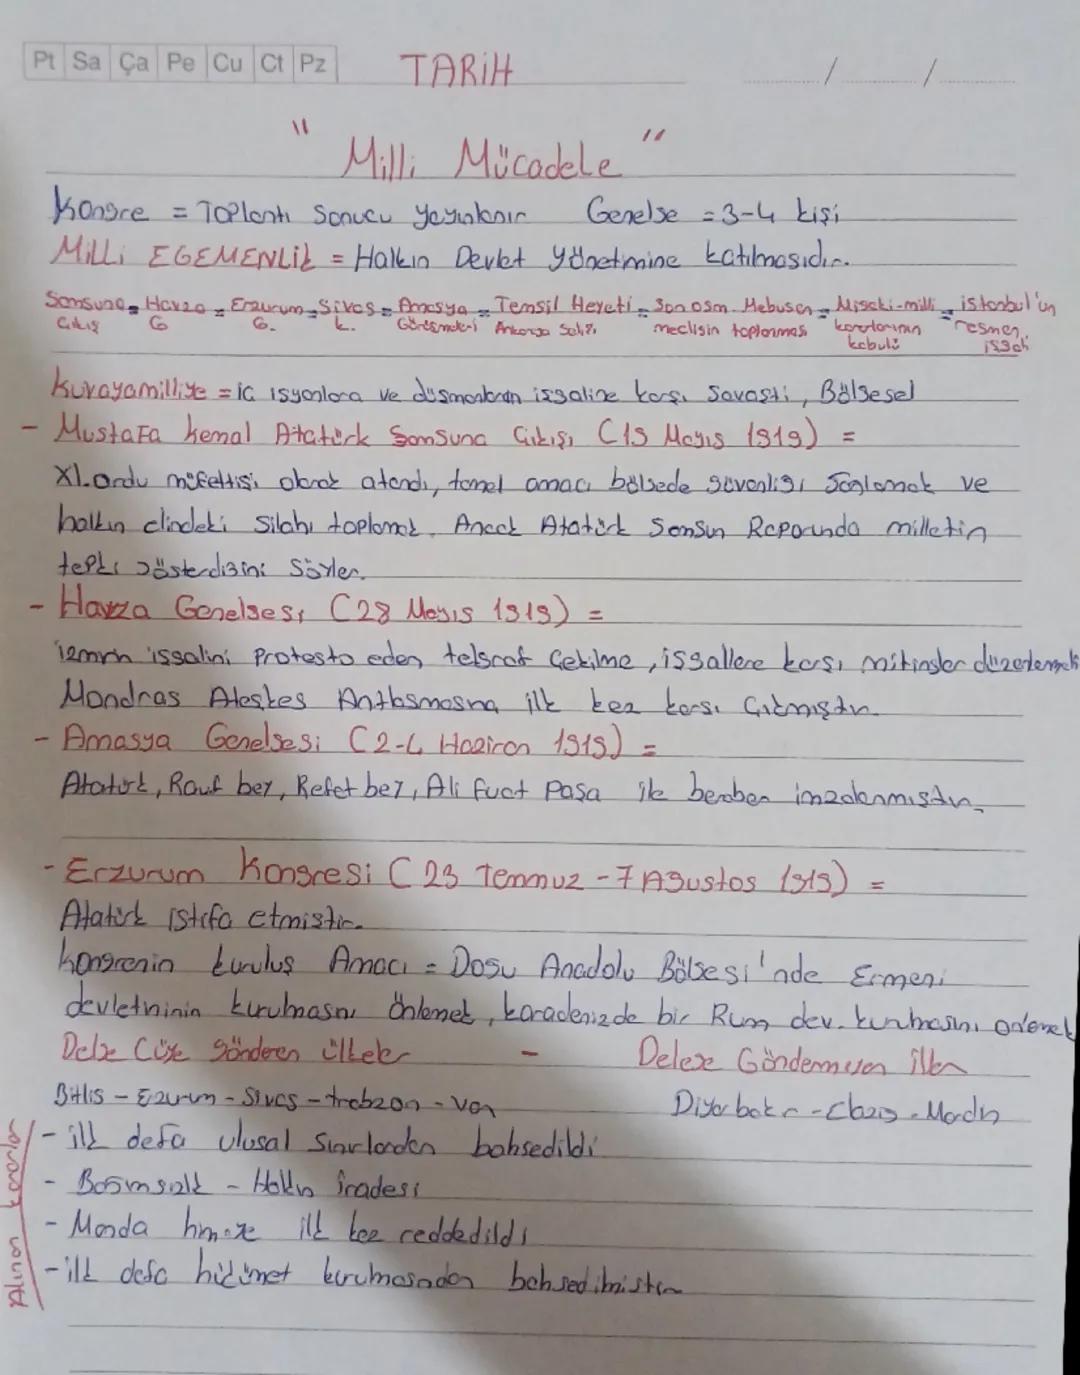 Pt Sa Ça Pe Cu Ct Pz
TARİH
/ /
" Milli Mücadele "
Kongre = Toplantı Sonucu Yayınlanır Genelge = 3-4 kişi
MİLLİ EGEMENLİK = Halkın Devlet yönetimine katılmasıdır.
Samsuna Çıkış = Havza G = Erzurum G. = Sivas k. = Amasya Görüşmeleri = Temsil Heyeti Ankara = Son osm. Mebusan meclisin toplanması = Misaki-milli kararlarının kabulü = istanbul'un resmen işgali
Kuvayamilliye = iç isyanlara ve düşmanların işgaline karşı savaştı, Bölgesel
- Mustafa Kemal Atatürk Samsuna Çıkışı (19 Mayıs 1919) =
XI. Ordu müfettişi olarak atandı, temel amacı bölgede güvenliği Sağlamak ve
halkın elindeki silahı toplamak. Ancak Atatürk Samsun Raporunda milletin
tepki gösterdiğini Söyler.
- Havza Genelgesi (28 Mayıs 1919) =
izmirin işgalini Protesto eden telgraf Çekilme, işgallere karşı mitingler düzenlemek
Mondros Ateşkes Antlaşmasına ilk kez karşı Çıkmıştır.
- Amasya Genelgesi (2-4 Haziran 1919) =
Atatürk, Rauf bey, Refet bey, Ali fuat Paşa ile beraber imzalanmıştır.
- Erzurum Kongresi (23 Temmuz - 7 Ağustos 1919) =
Atatürk istifa etmiştir.
Kongrenin kuruluş Amacı = Doğu Anadolu Bölgesi'nde Ermeni
devletninin kurulmasını Önlemek, karadenizde bir Rum dev. kurulmasını önlemek
Delege Gönderen ülkeler - Delege Göndermeyen ilker
Bitlis - Erzurum - Sivas - trabzon - Van Diyarbakır - Elazığ - Mardin
Alınan kararlar
- ilk defa ulusal Sınırlardan bahsedildi
- Bağımsızlık - Halkın iradesi
- Manda himaye ilk kez reddedildi
- ilk defa hükümet kurulmasından bahsedilmiştir